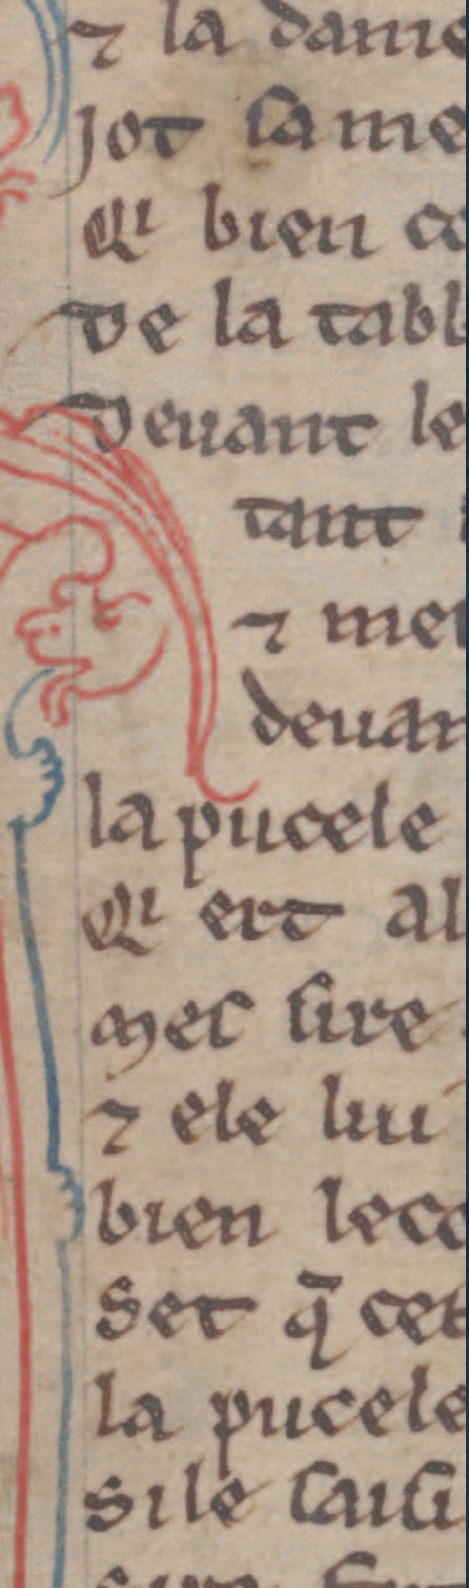 ⁊ la dame
jot la me
Qi bien co
De la tabl
Deuant le
tant
⁊ mei
deuan
la pucele
Qi ert al
mes sire
⁊ ele lui
bien lece
Set q̄ cel
la pucele
Si le saisi